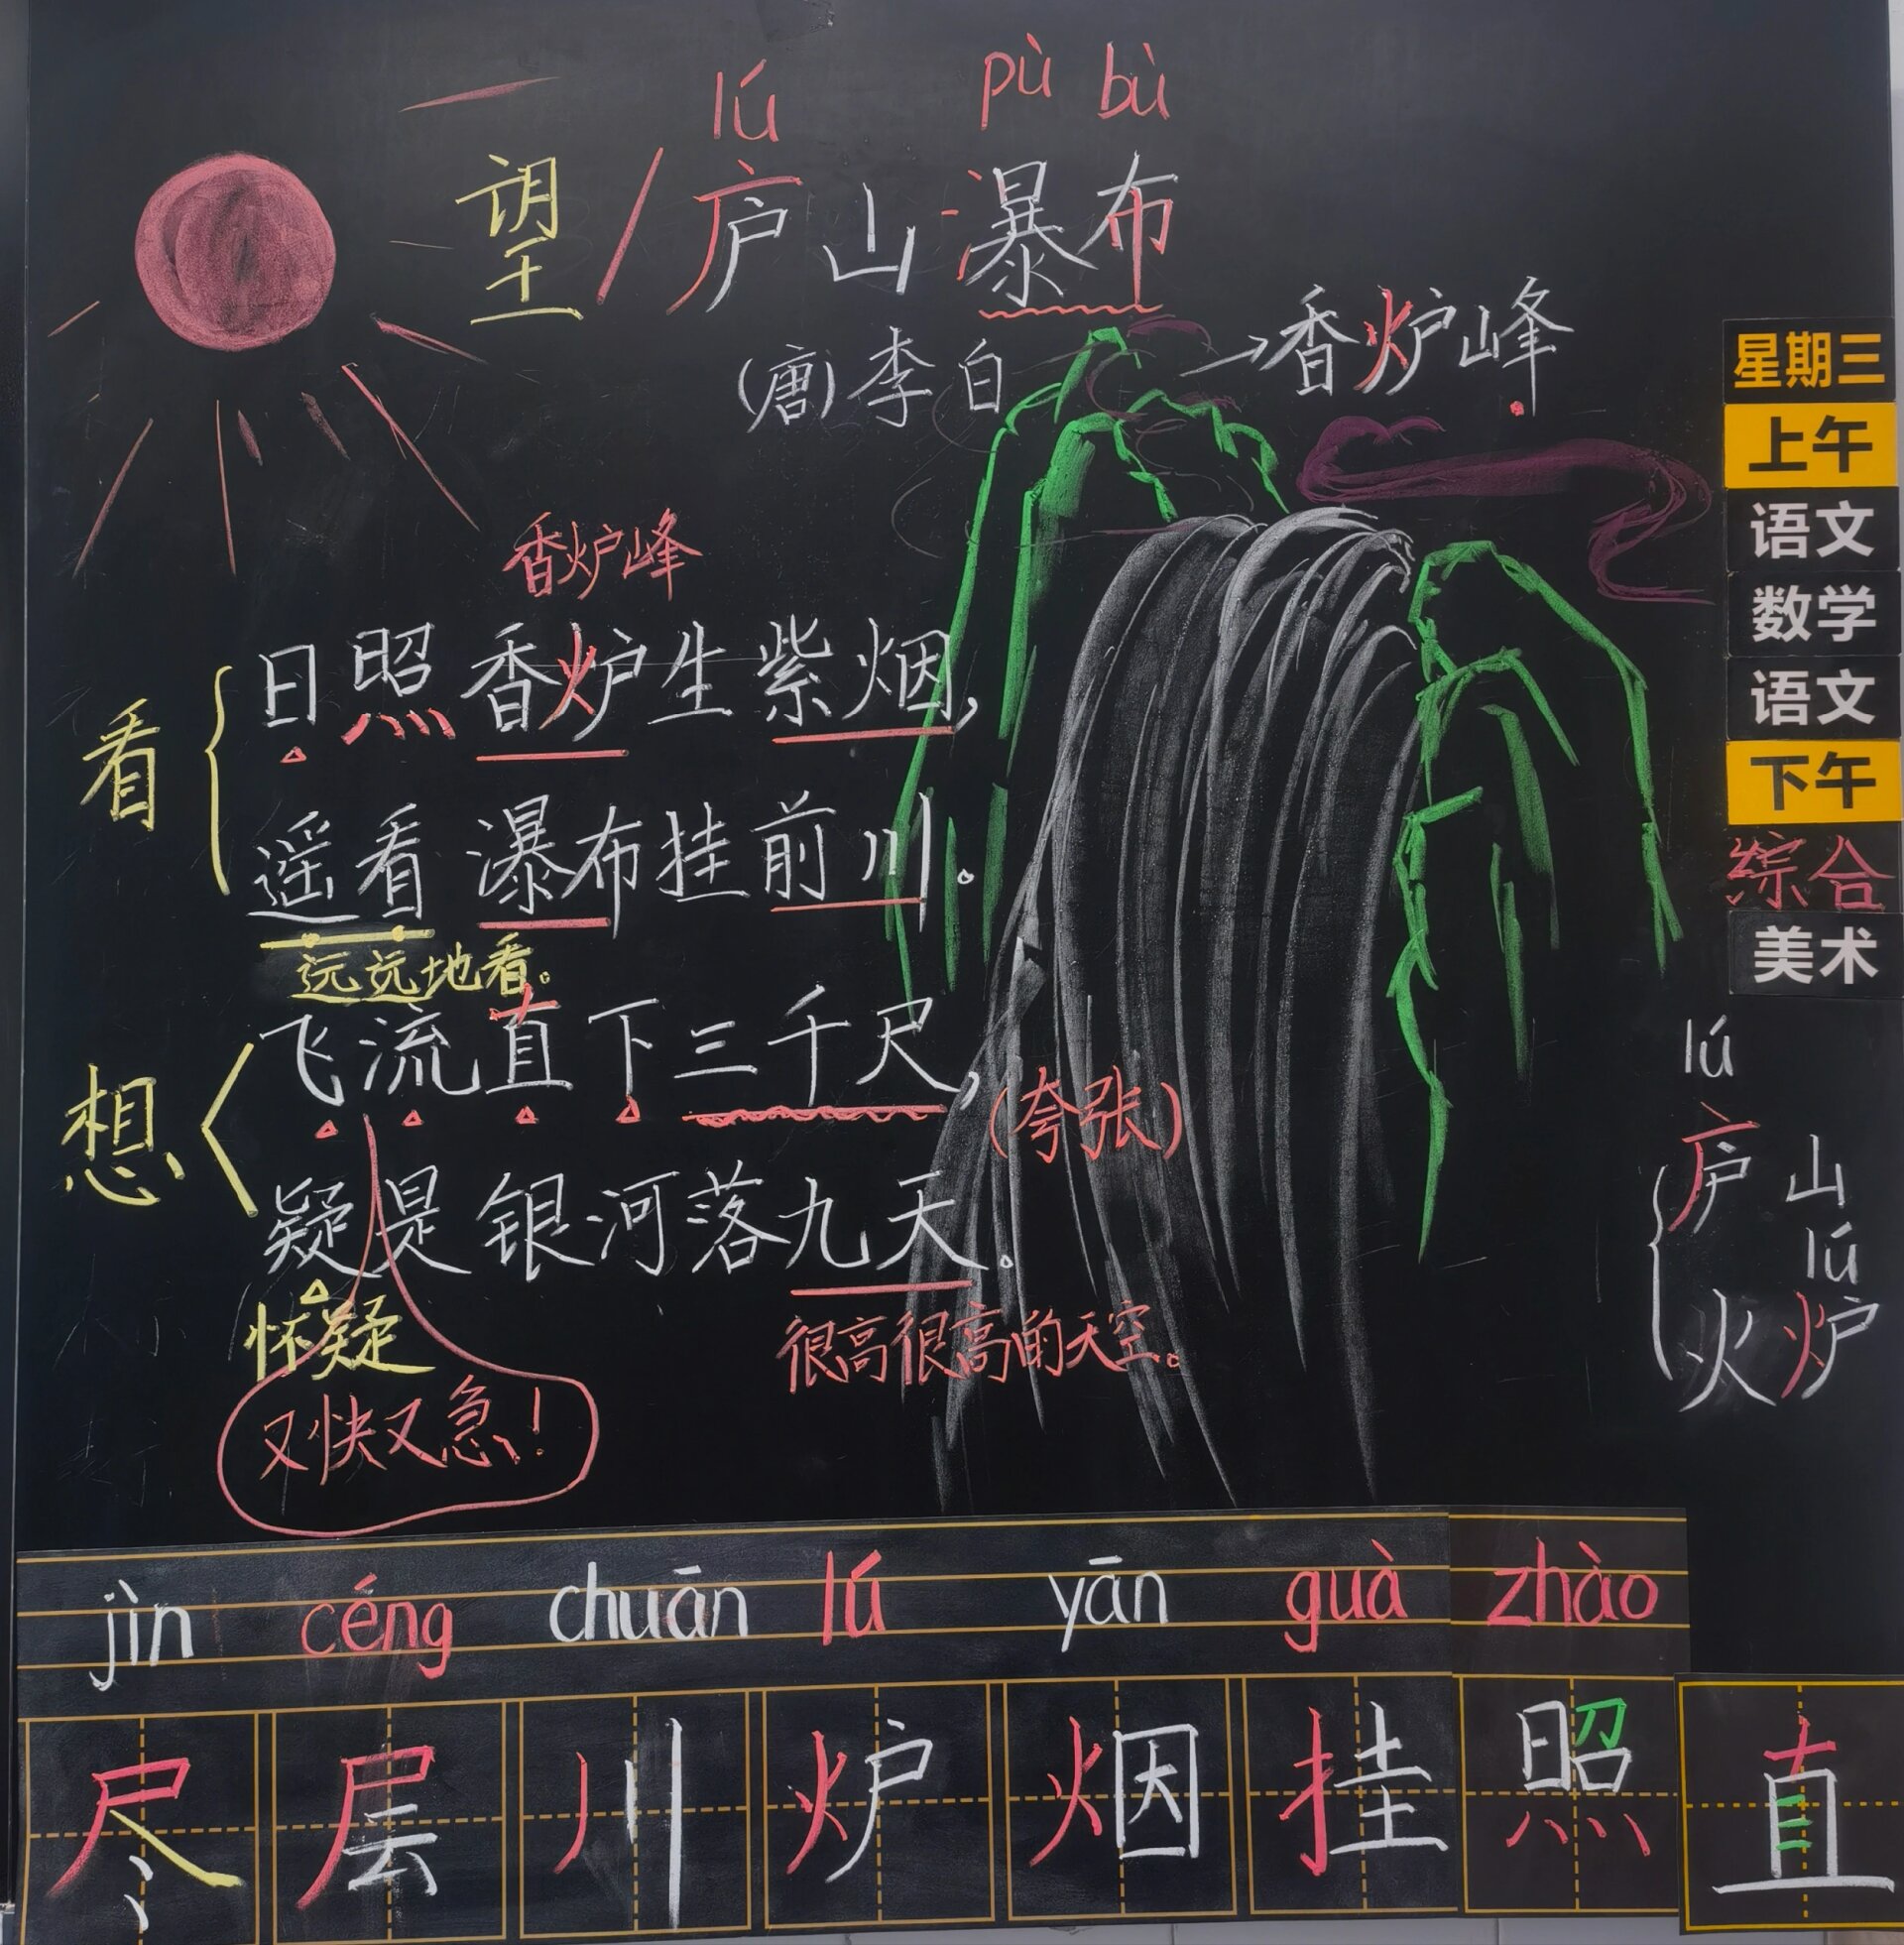 lú pù bù
望/庐山瀑布
(唐)李白
→香炉峰
香炉峰
看
日照香炉生紫烟，
遥看瀑布挂前川。
远远地看。
想
飞流直下三千尺，
(夸张)
疑是银河落九天。
怀疑
很高很高的天空。
又快又急！
星期三
上午
语文
数学
语文
下午
综合
美术
lú
庐山
lú
火炉
jìn céng chuān lú yān guà zhào
尽 层 川 炉 烟 挂 照 直